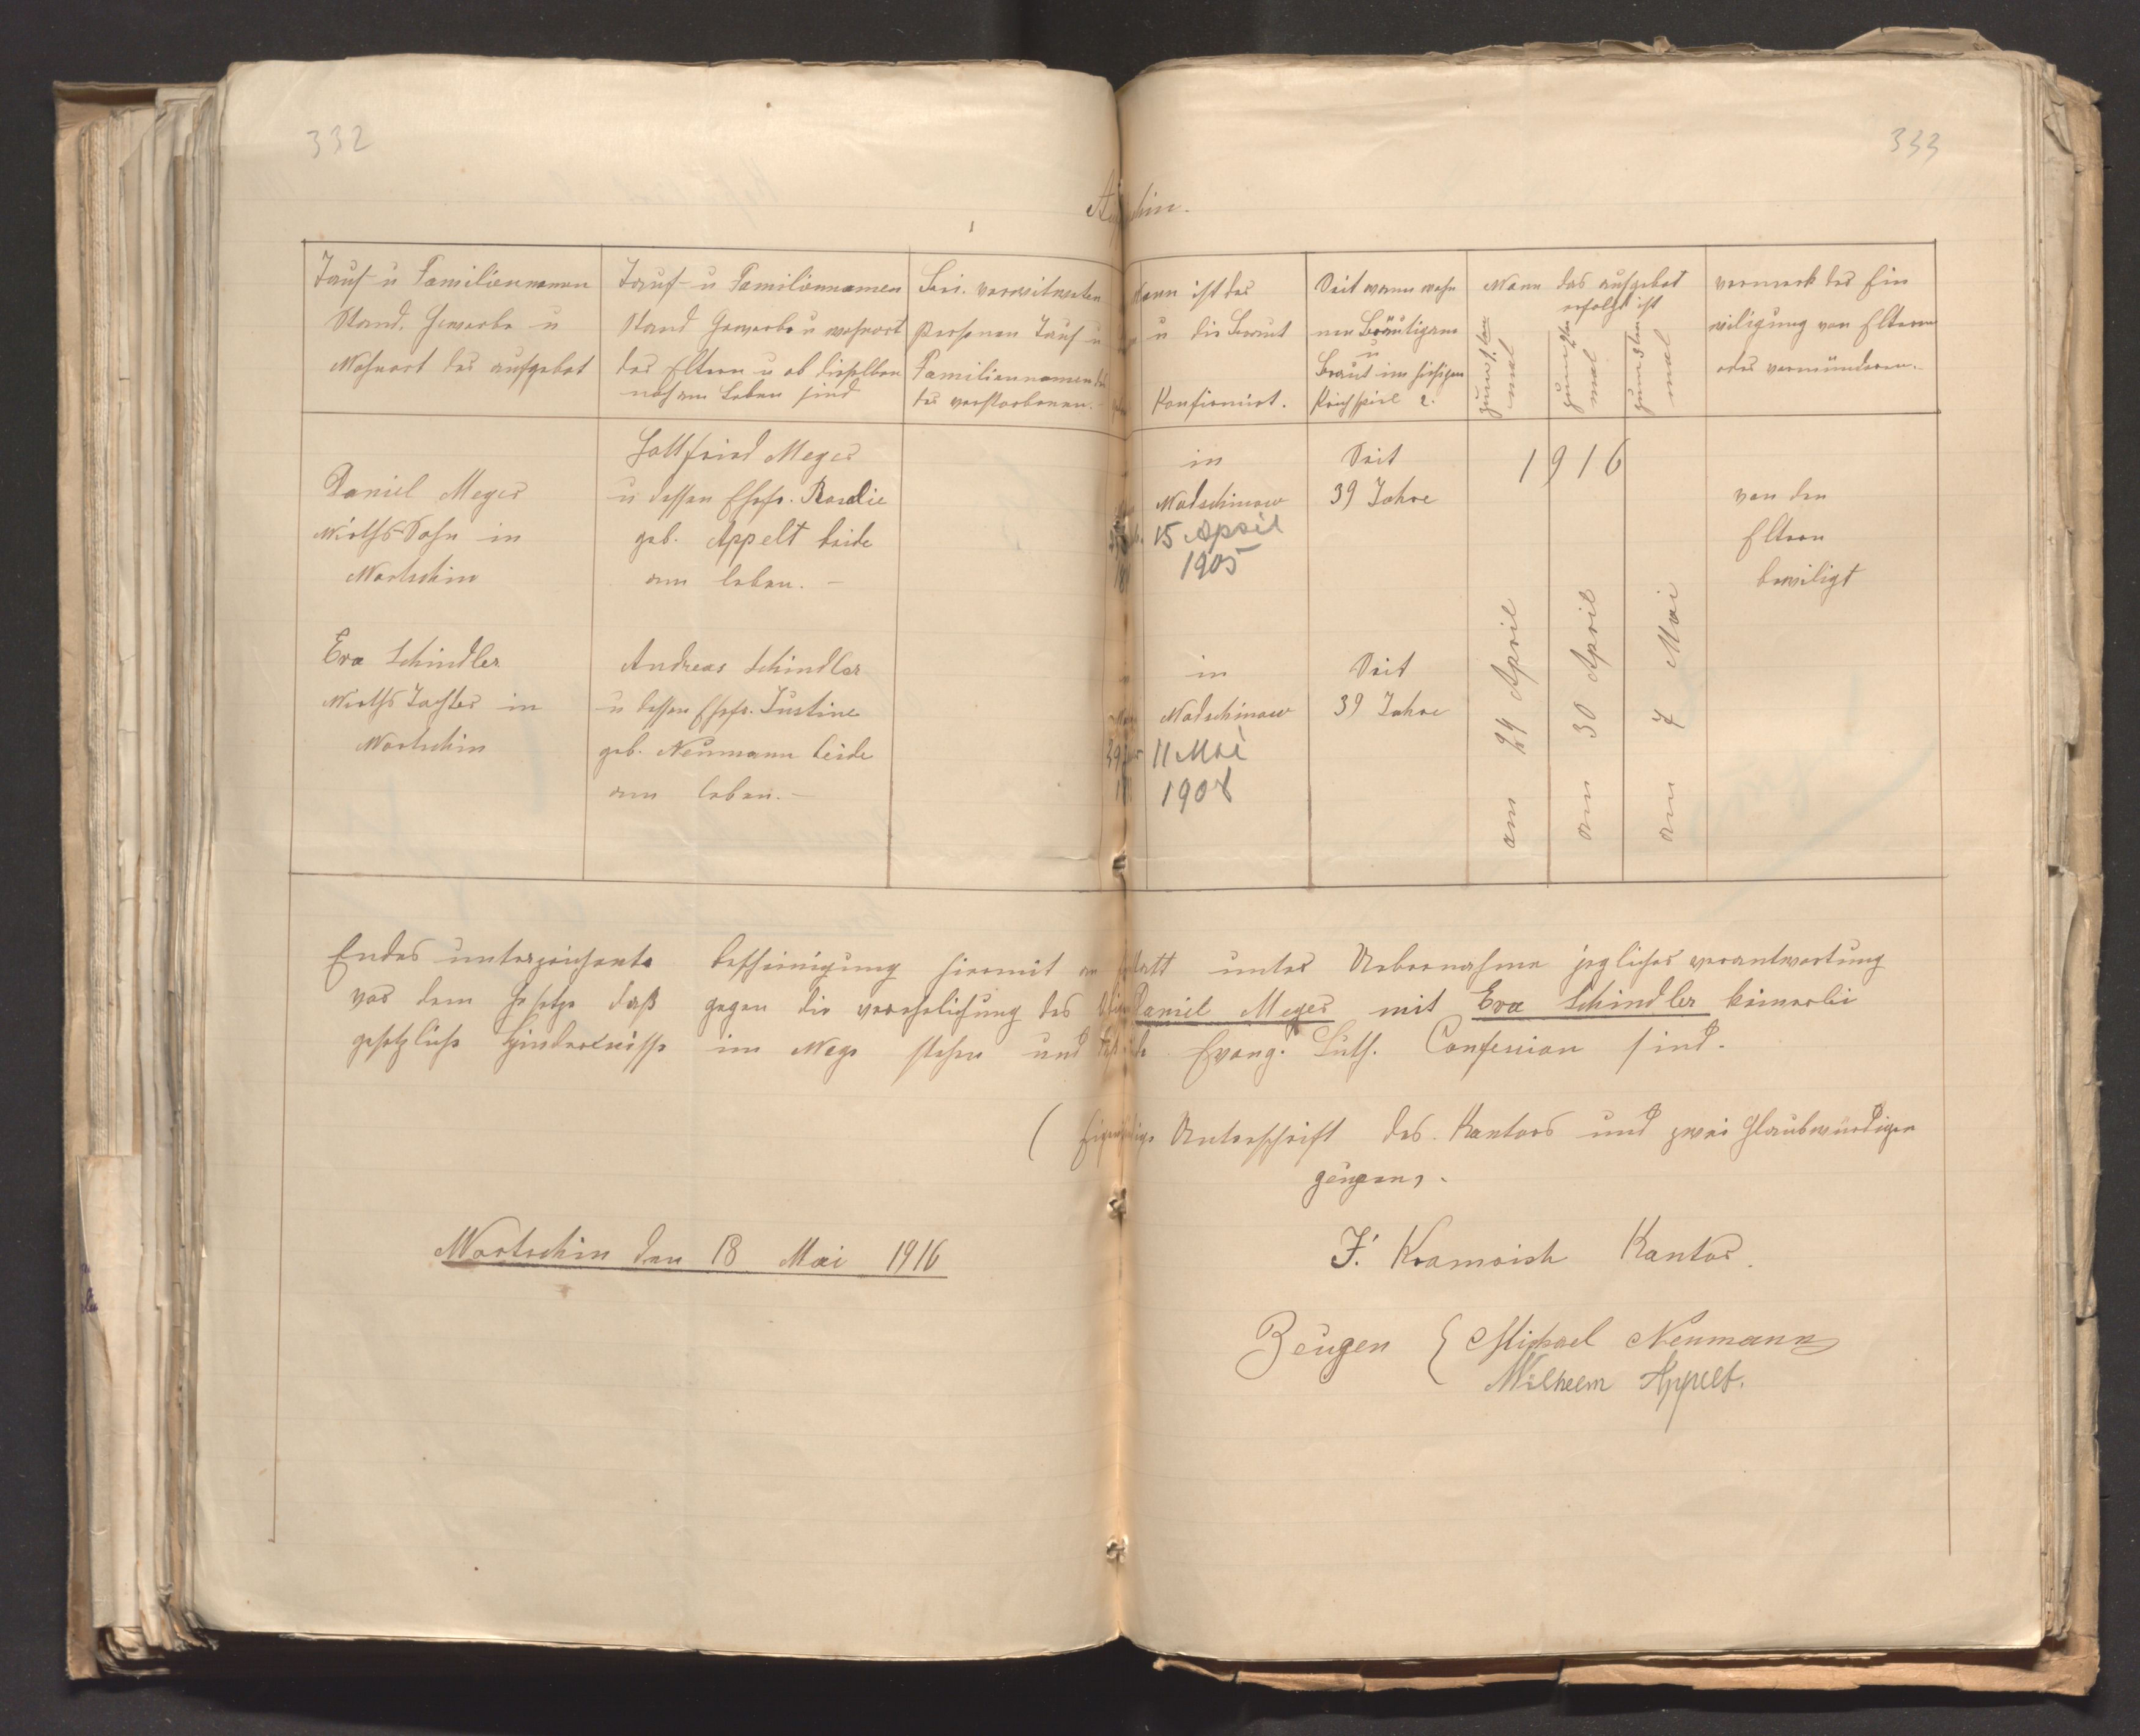 332
333
Tauf u Familiennamen
Stand. Gewerbe u
Wohnort des aufgebot
Tauf- u Familiennamen
Stand Gewerbe u wohnort
der Eltern u ob dieselben
noch am Leben sind
Bei. verwitweten
Personen Tauf u
Familiennamen des
des verstorbenen.-
Wann ist der
u die Braut
Konfirmirt.
Seit wann woh
nen Bräutigam
u
Braut im hiesigen
Kirchspiel
Wann das aufgebot
erfolgt ist
zum 1. ten
mal
zum 2 ten
mal
zum 3 ten
mal
vermerk der Ein
wiligung von Eltern
oder vormündern.
Daniel Meger
Wirths-Sohn in
Wortschin
Gottfried Meger
u dessen Ehefr. Rosalie
geb. Appelt beide
am leben. -
in
Matschinow
15 April
1905
Seit
39 Jahre
1916
von den
Eltern
bewiligt
Eva Schindler
Wirths Tochter in
Wortschin
Andreas Schindler
u dessen Ehefr. Justine
geb. Neumann beide
am leben. -
in
Matschinow
11 Mai
1908
Seit
39 Jahre
am 24 April
am 30 April
am 7 Mai
Endes unterzeichnete bescheinigung hiermit an statt unter Uebernahme jeglicher verantwortung
vor dem Gesetze daß gegen die verehelichung des Daniel Meger mit Eva Schindler keinerlei
gesetzliche Hindernisse im Wege stehen und Evang. Luth. Confession sind.
( Unterschrift des Kantors und zwei Glaubwürdigen
zeugen).
Wortschin den 18 Mai 1916
Kantor.
Zeugen { Michael Neumann
Wilhelm Appelt.